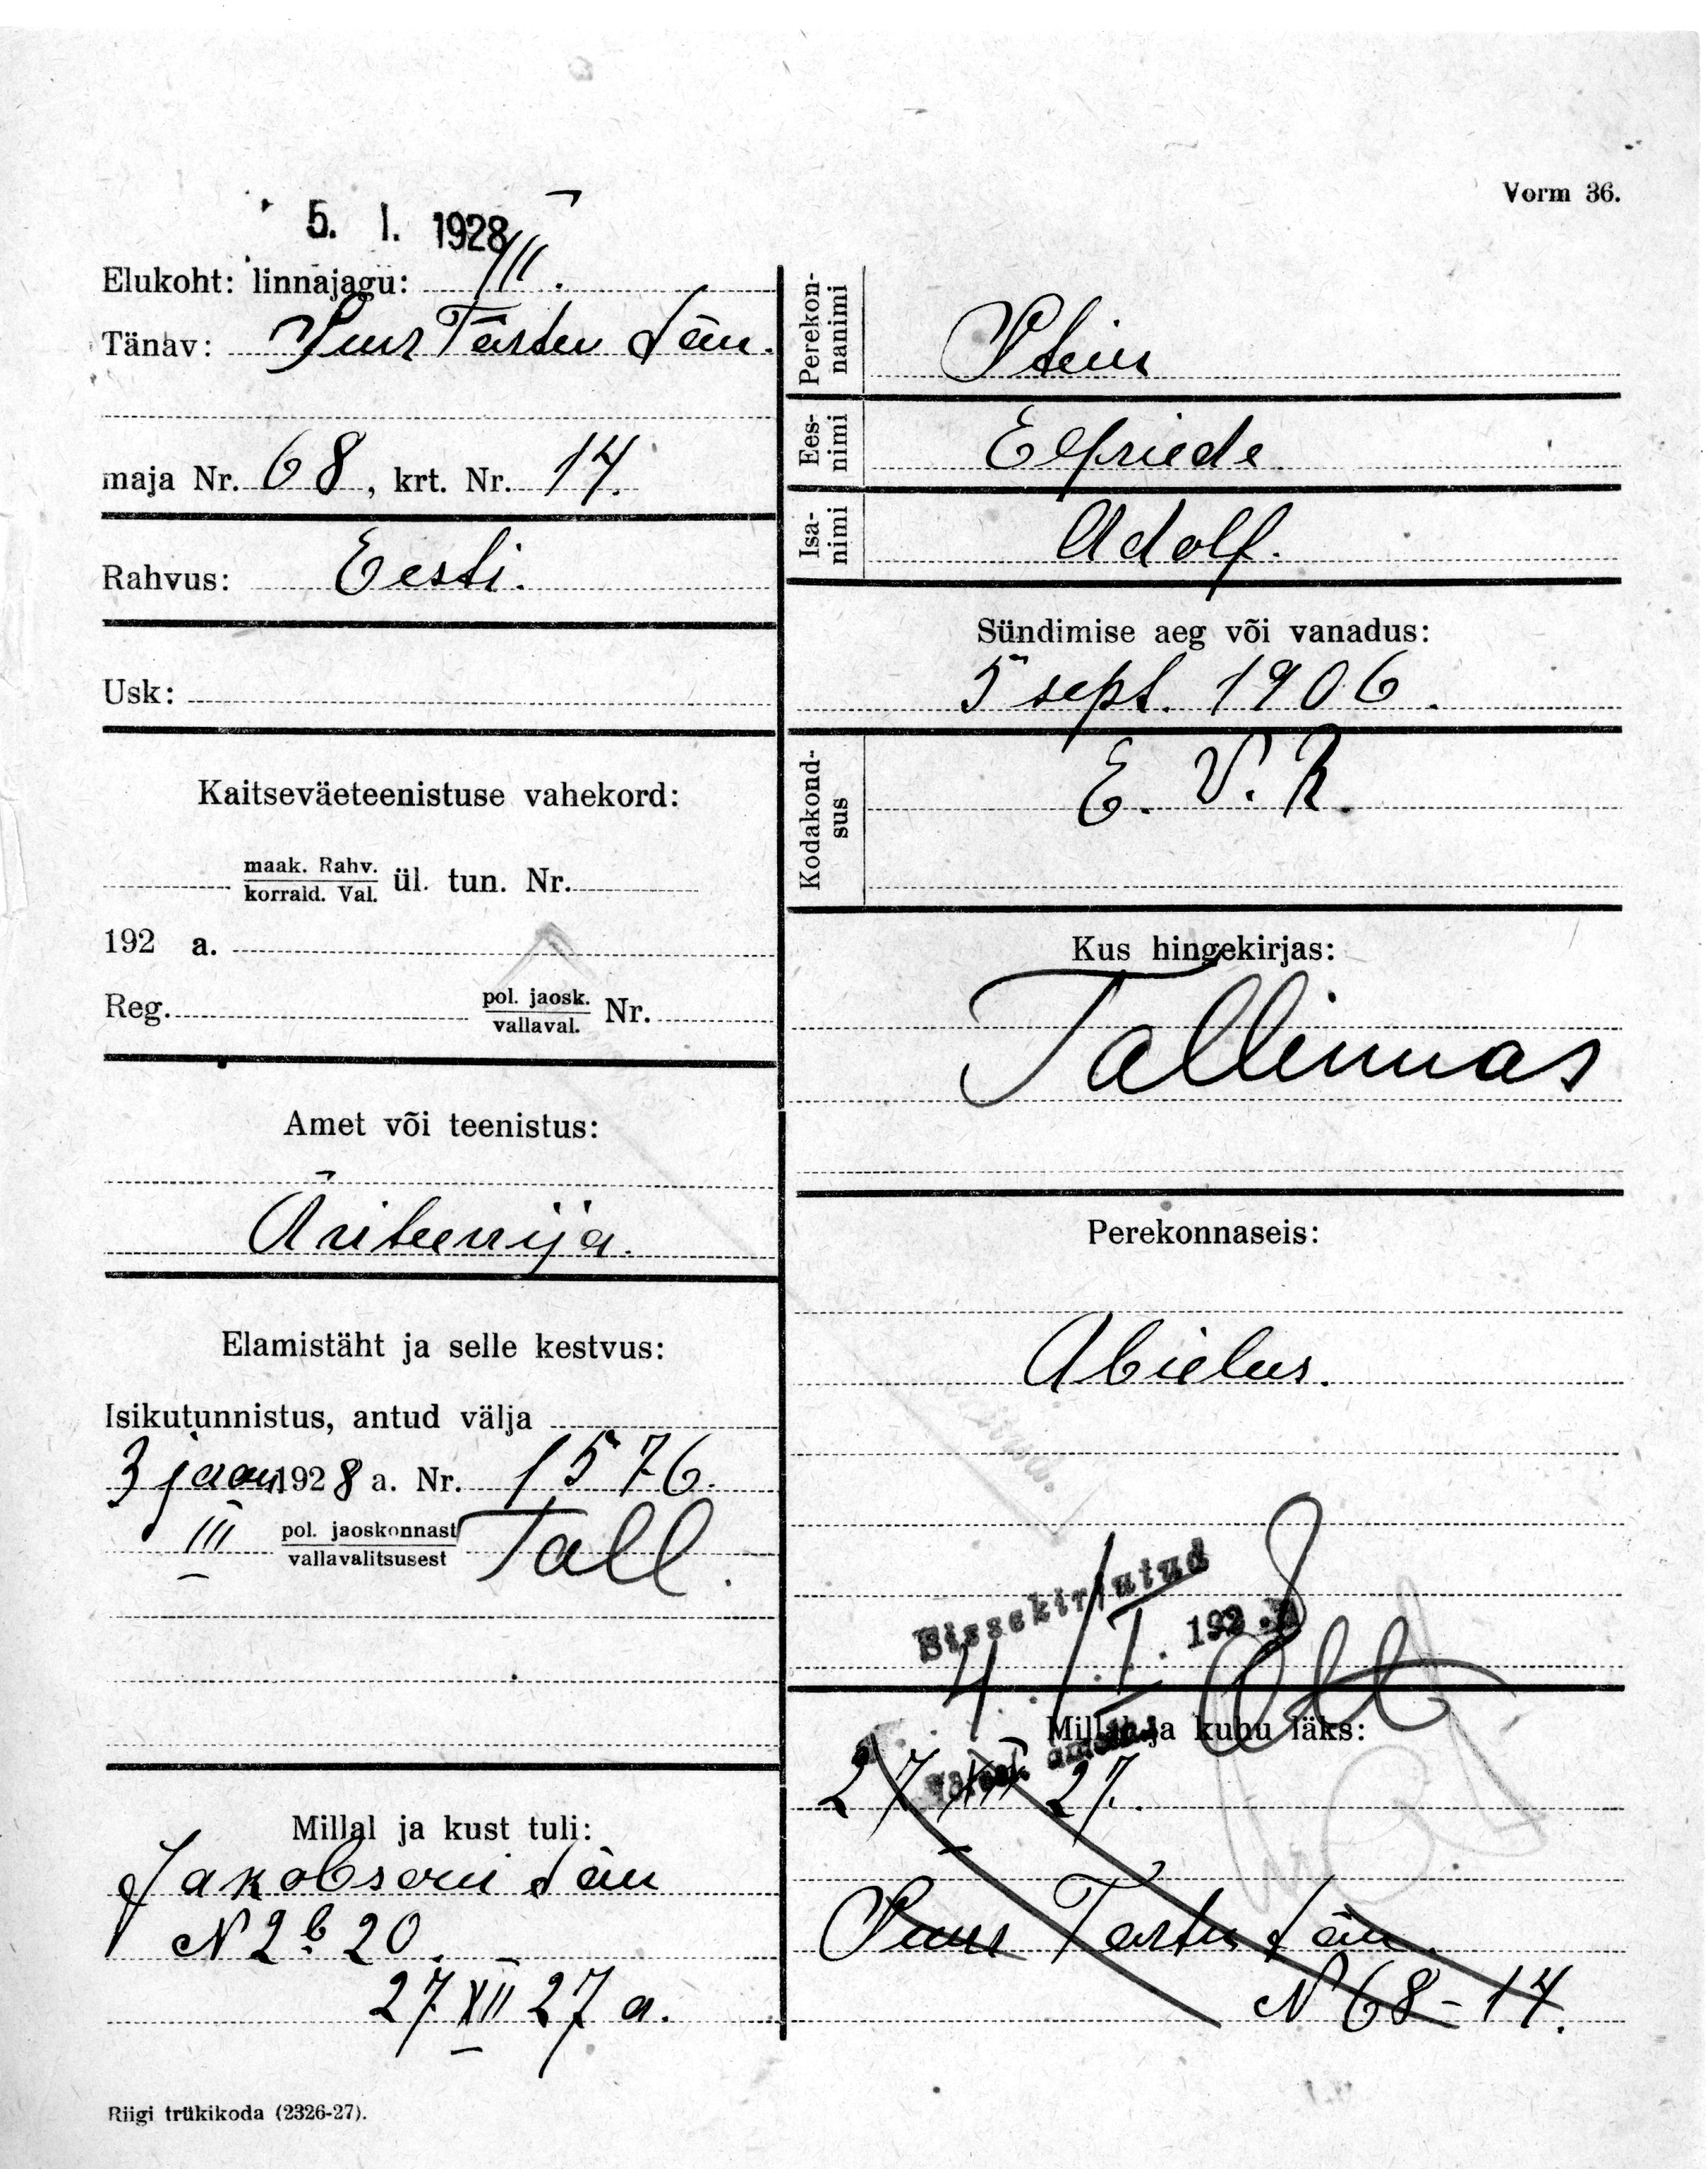 Vorm 36.
5. I. 1928
Elukoht: linnajagu: III.
Tänav: Suur Tartu tän.
maja Nr. 68, krt. Nr. 14.
Rahvus: Eesti.
Usk:
Kaitseväeteenistuse vahekord:
maak. Rahv.
korrald. Val. ül. tun. Nr.
192 a.
Reg. pol. jaosk.
vallaval. Nr.
Amet või teenistus:
Äriteenija.
Elamistäht ja selle kestvus:
Isikutunnistus, antud välja
3 jaan 1928 a. Nr. 1576.
III pol. jaoskonnast
vallavalitsusest Tall.
Millal ja kust tuli:
Jakobsoni tän
N 2b 20.
27 XII 27 a.
Riigi trükikoda (2326-27).
Perekon-
nanimi
Stein
Ees-
nimi
Elfriede
Isa-
nimi
Adolf.
Sündimise aeg või vanadus:
5 sept. 1906.
Kodakond-
sus
E. V. K.
Kus hingekirjas:
Tallinnas
Perekonnaseis:
Abielus.
Sissekirjutud
4/I. 1928
Millal ja kuhu läks:
27 XII 27.
Suur Tartu tän.
N 68-14.